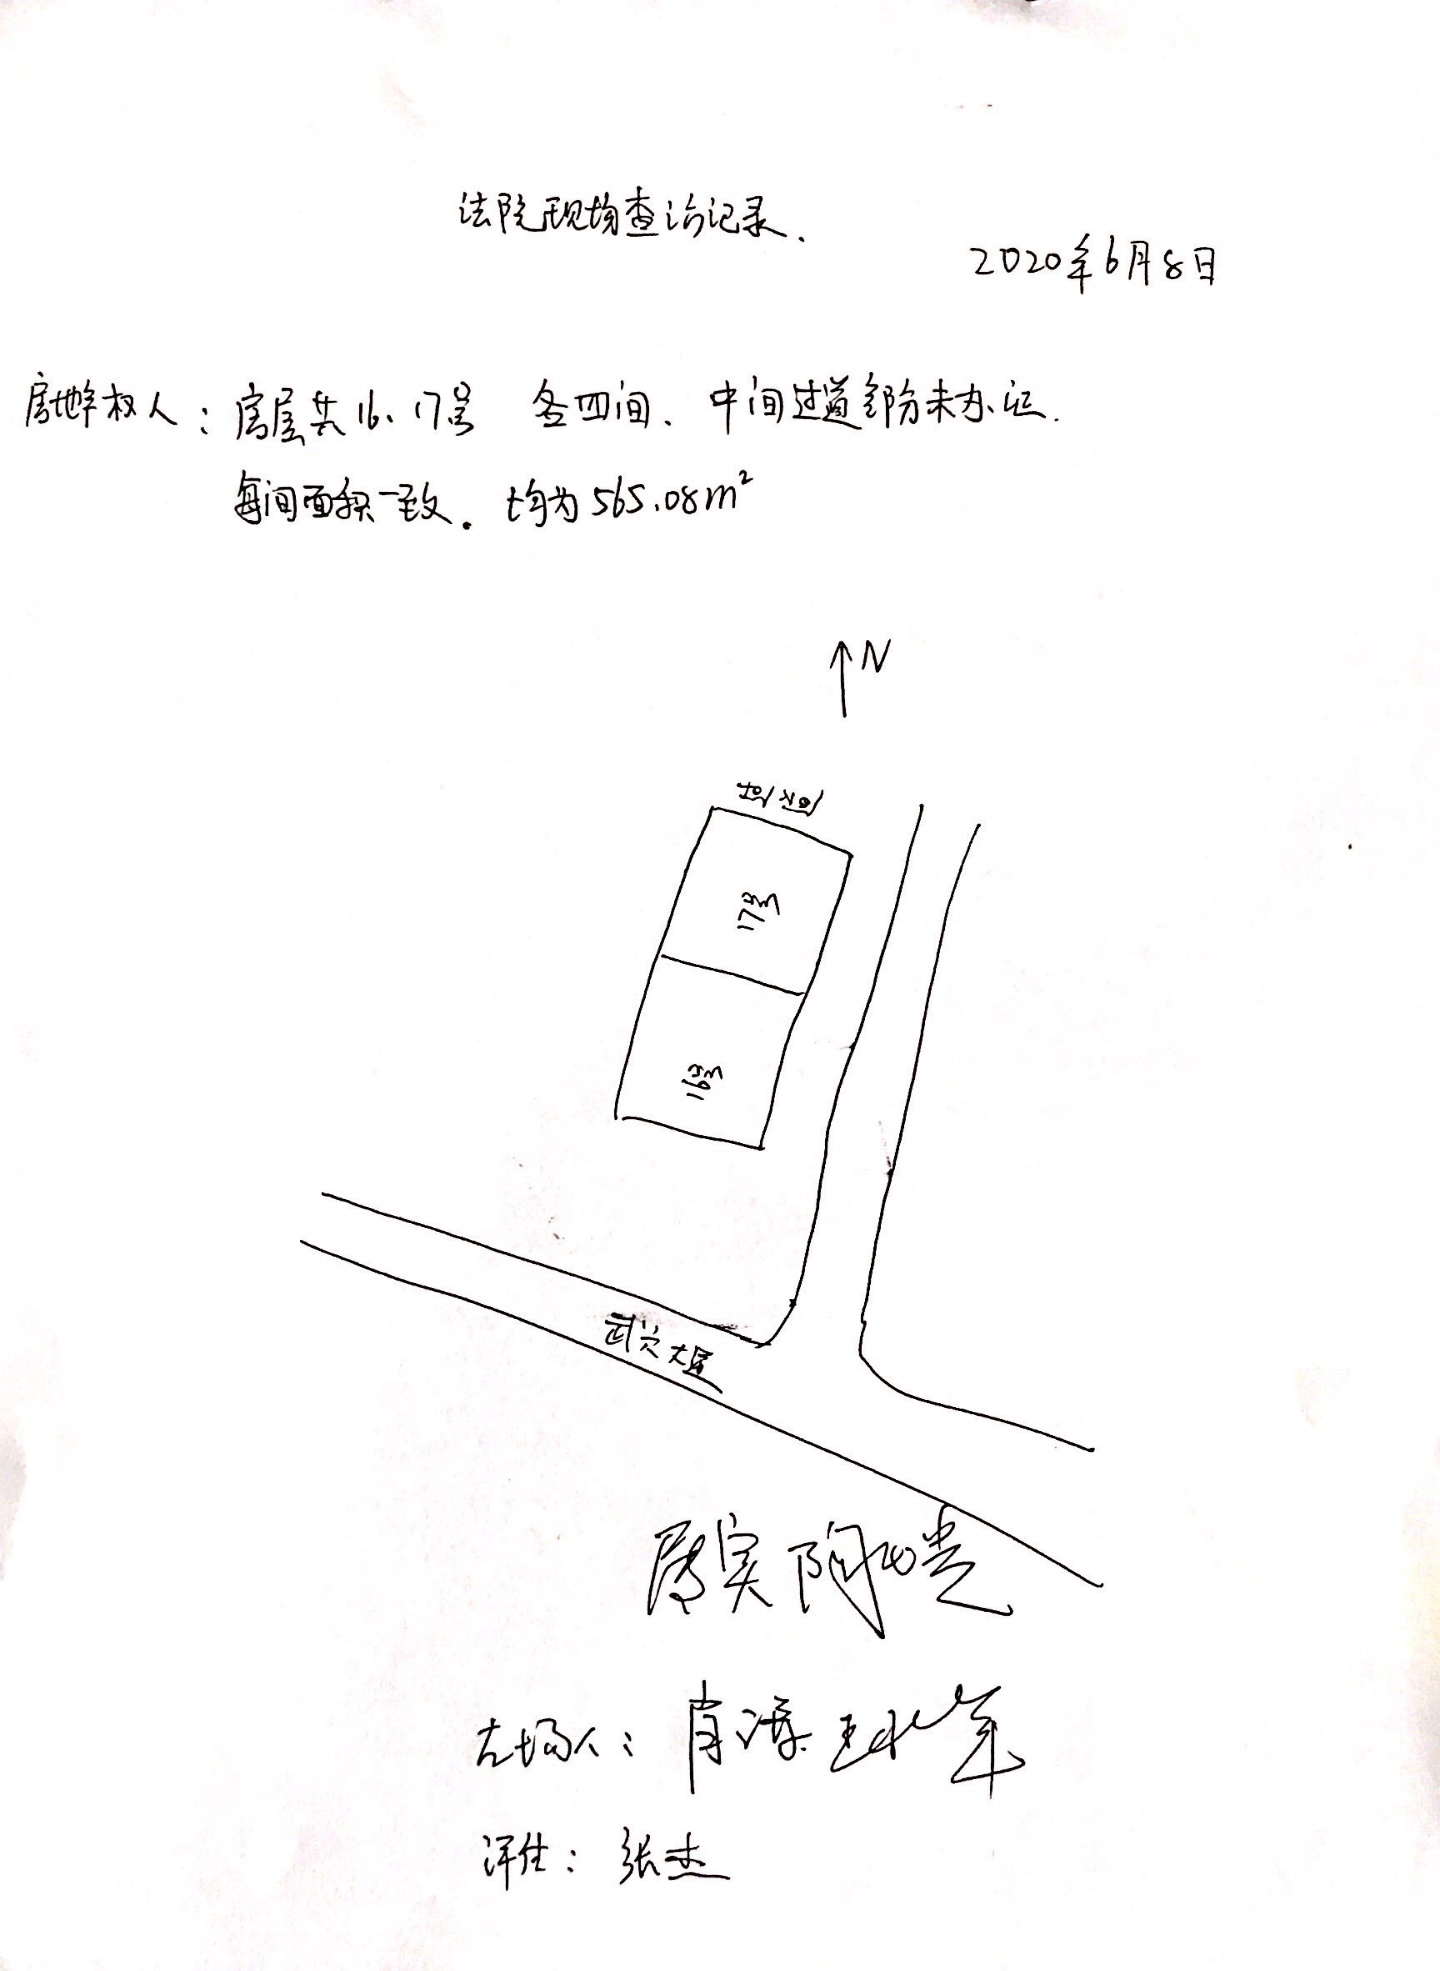 法院现场查勘记录.
2020年6月8日
房地产权人：房屋共16、17号 各四间、中间过道部分未办证.
每间面积一致. 均为565.08m²
↑N
17号
16号
武汉大道
属实
在场人：肖涛
评估：张杰